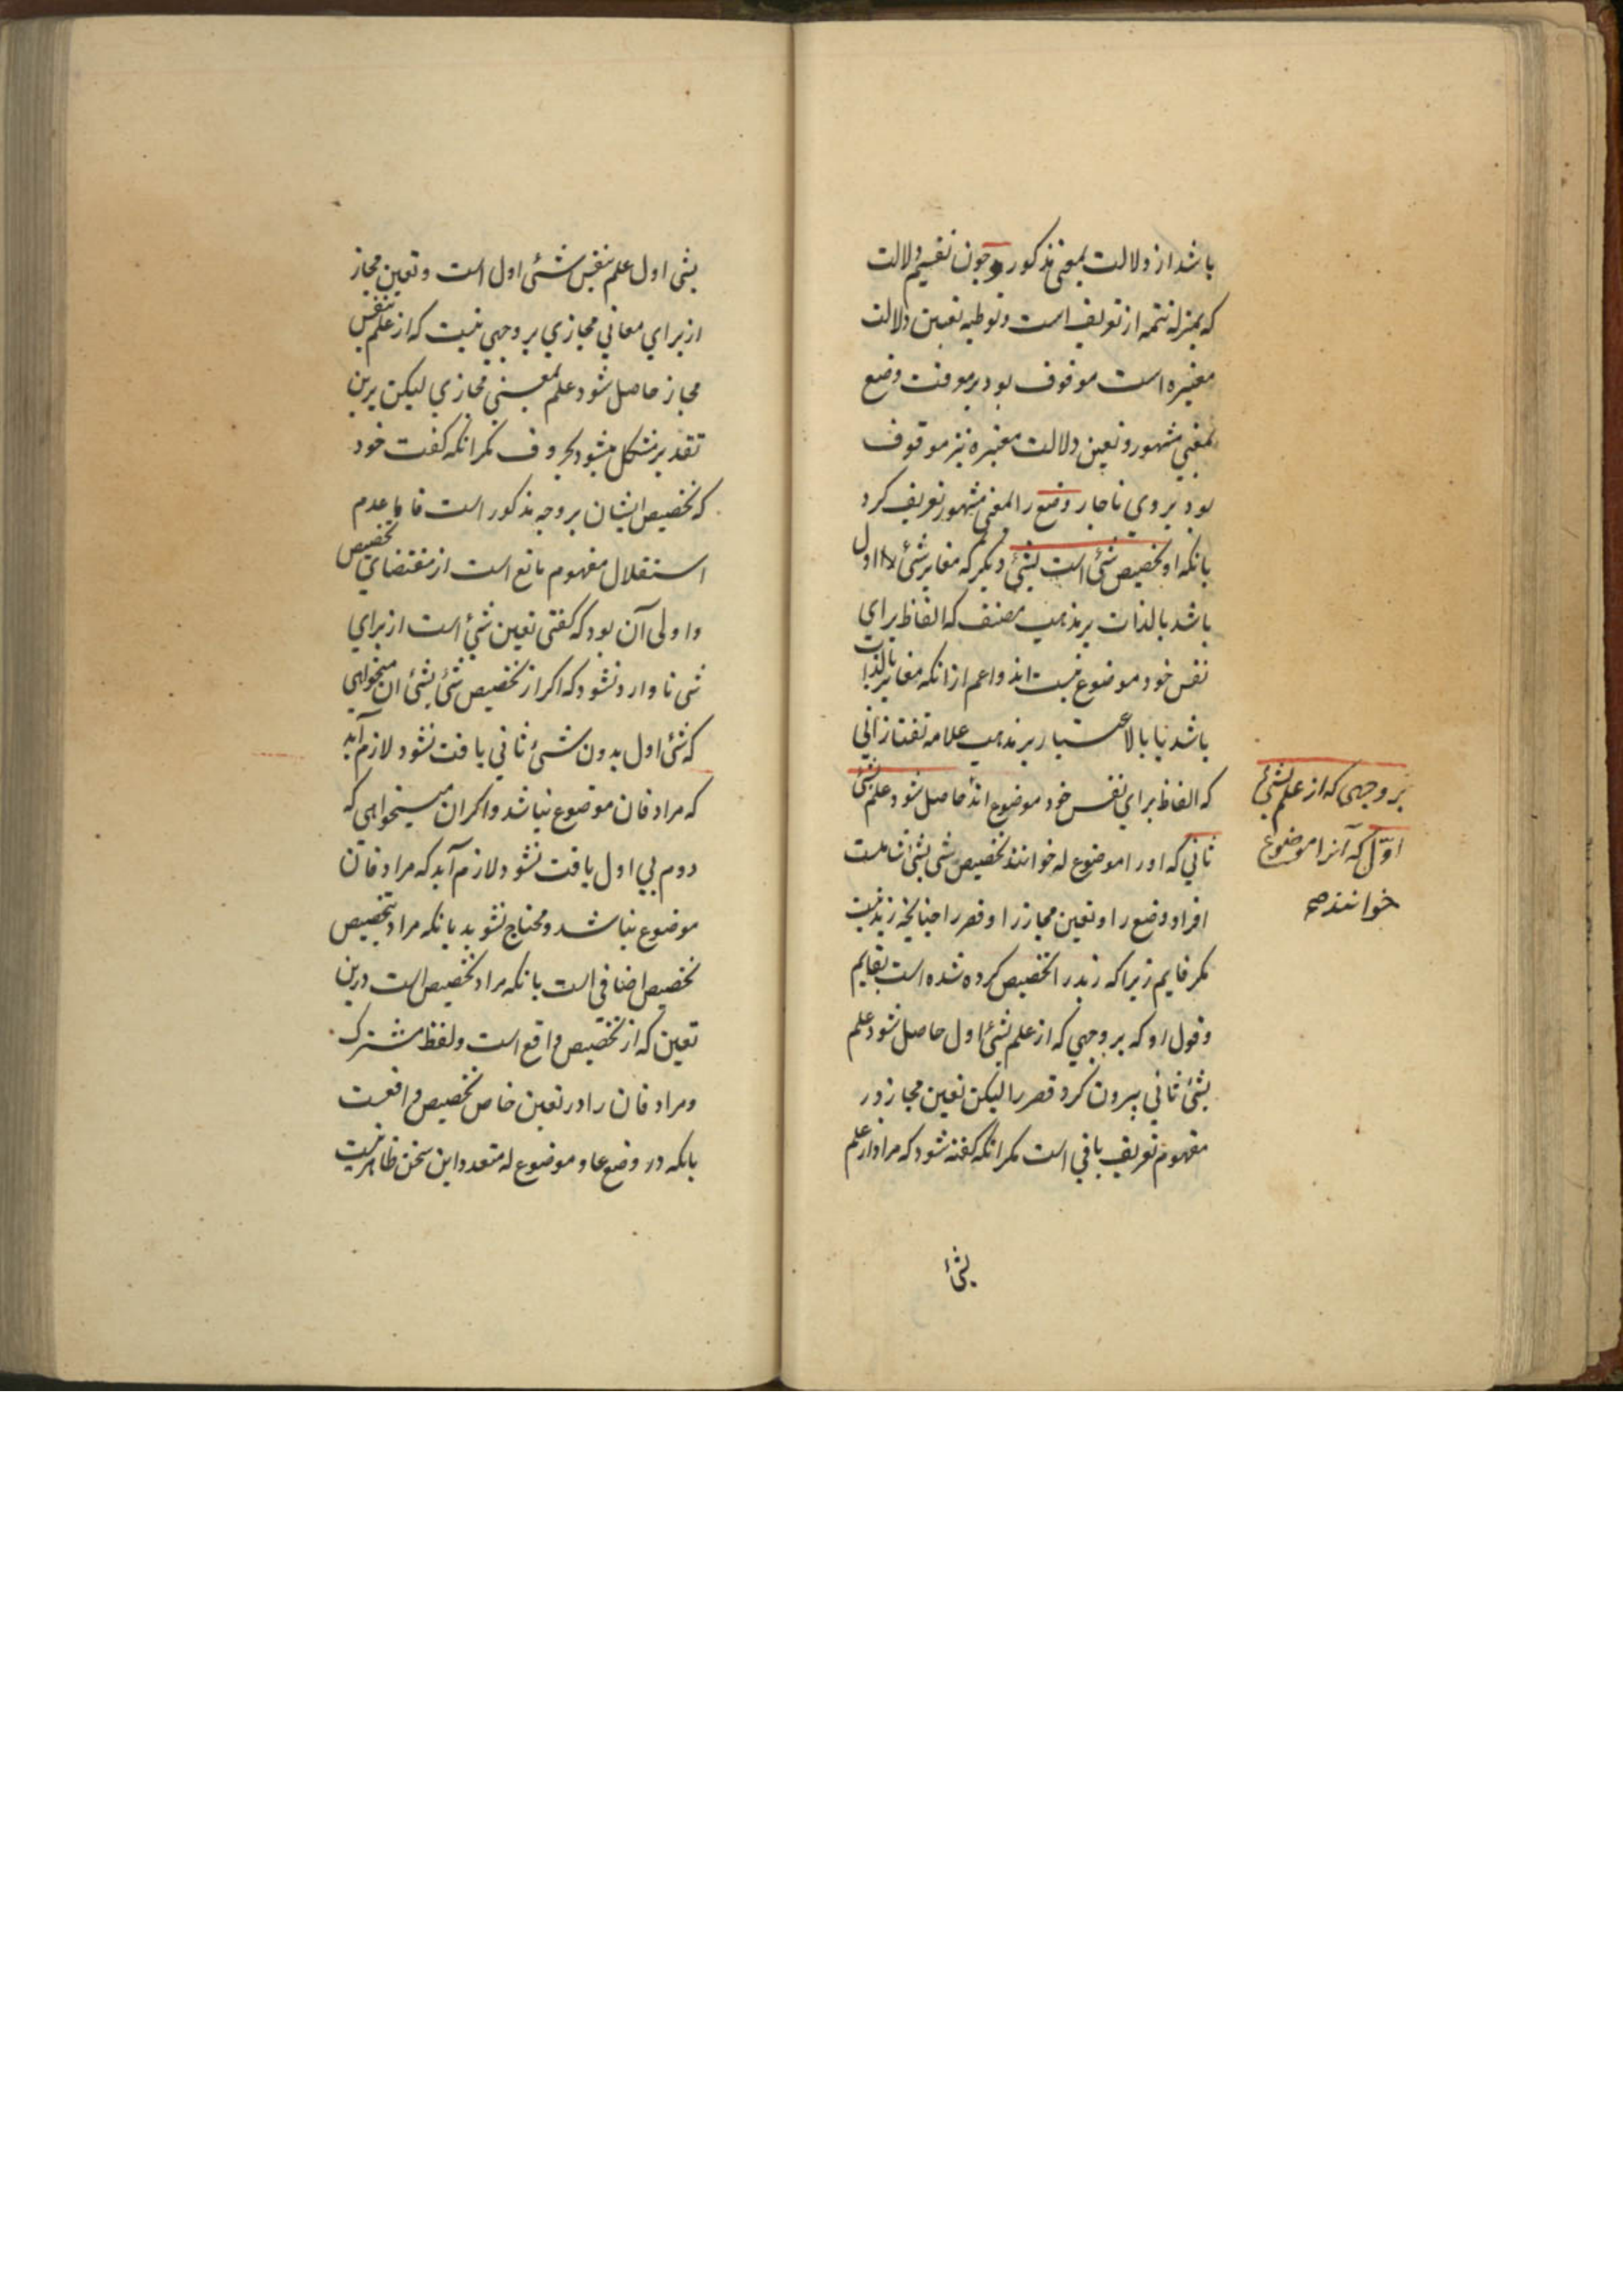 باشد از دلالت بمعنی مذکور و چون تقسیم دلالت
که بمنزله تتمه از تعریف است و توطیه تعیین دلالت
معتبره است موقوف بود بر معرفت وضع
بمعنی مشهور و تعیین دلالت معتبره نیز موقوف
بود بر وی ناچار وضع را بمعنی مشهور تعریف کرد
بانکه او تخصیص شئ است بشئ دیگر که مغایر شئ اول
باشد بالذات بر مذهب مصنف که الفاظ برای
نفس خود موضوع نیست اند و اعم از انکه مغایر بالذات
باشد یا بالاعتبار بر مذهب علامه تفتازانی
که الفاظ برای نفس خود موضوع اند حاصل شود علم بشئ
ثانی که او را موضوع له خوانند تخصیص شی بشئ شاملست
افراد وضع را و تعین مجاز را و قصر را چنانچه زید نیست
مکر قایم زیرا که زید را تخصیص کرده شده است بقایم
و قول او که بر وجهی که از علم بشئ اول حاصل شود علم
بشئ ثانی بیرون کرد قصر را لیکن تعین مجاز در
مفهوم تعریف باقی است مکر انکه کفته شود که مراد از علم
بشئ
بر وجهی که از علم بشئ
اوّل که آنرا موضوع
خوانند صح
بشی اول علم بنفس شئ اول است و تعین مجاز
از برای معانی مجازی بر وجهی نیست که از علم بنفس
مجاز حاصل شود علم بمعنی مجازی لیکن برین
تقدیر مشکل میشود بحروف مکر انکه کفت خود
که تخصیص ایشان بر وجه مذکور است فاما عدم
استقلال مفهوم مانع است از مقتضای تخصیص
و اولی آن بود که کفتی تعین شئ است از برای
شی تا وارد نشود که اکر از تخصیص شئ بشئ ان میخواهی
که شئ اول بدون شئ ثانی یافت نشود لازم آید
که مرادفان موضوع نباشد و اکر ان میخواهی که
دوم بی اول یافت نشود لازم آید که مرادفان
موضوع نباشد و محتاج نشوید بانکه مراد بتخصیص
تخصیص اضافی است یا نکه مراد تخصیص است درین
تعین که از تخصیص واقع است و لفظ مشترک
و مرادفان را در تعین خاص تخصیص واقعست
بانکه در وضع عام و موضوع له متعدد این سخن ظاهر نیست